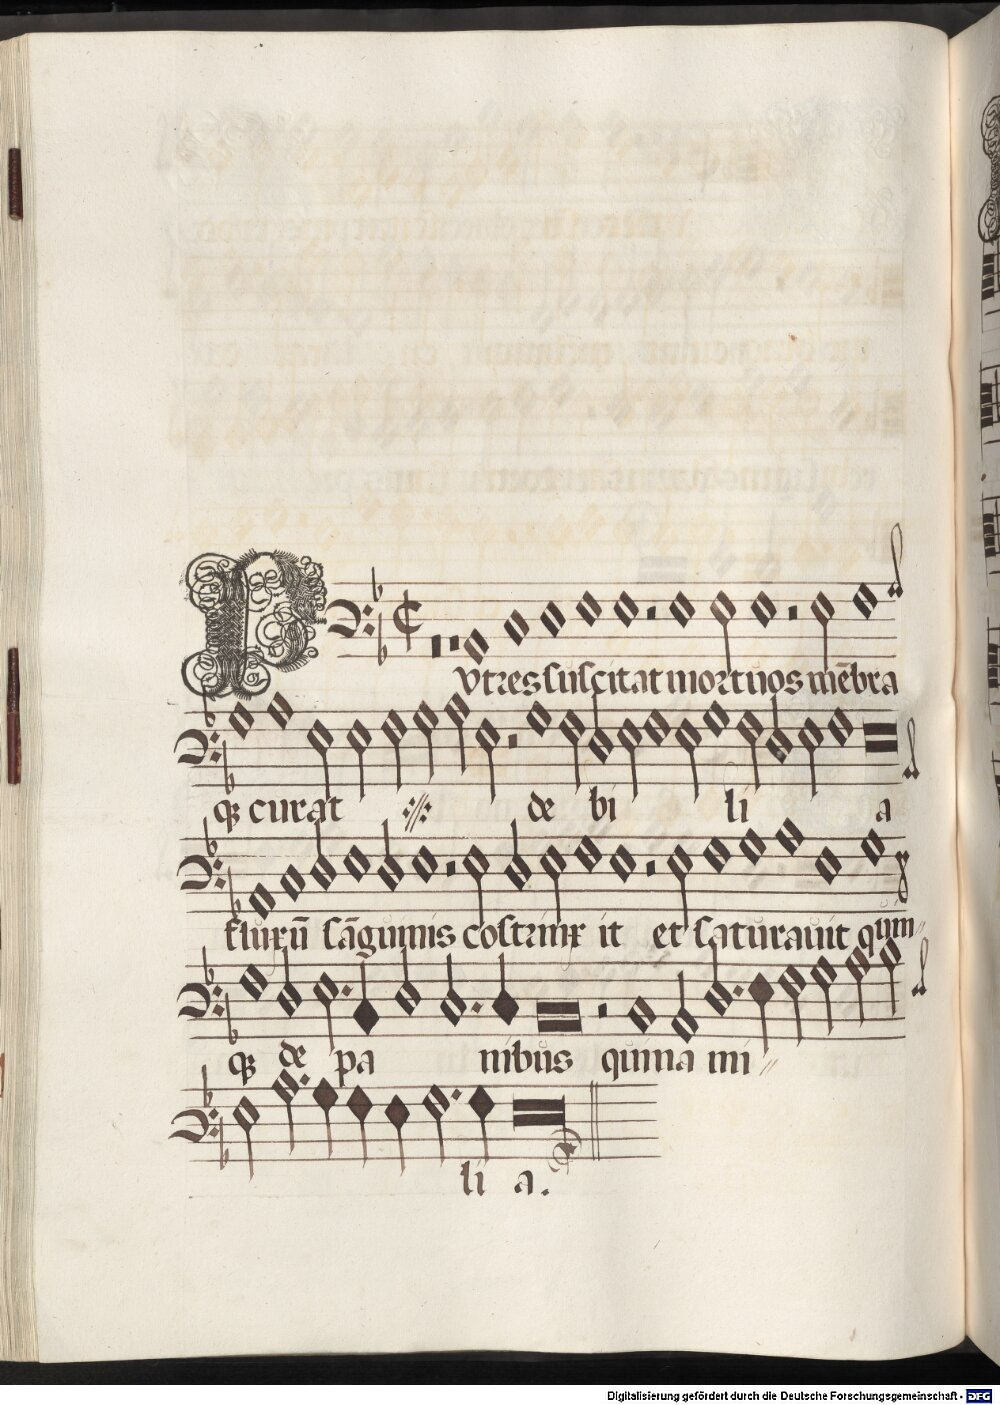 Putres suscitat mortuos mēbra
q̄ curat de bi li a
fluxū sāguinis costrinx it et saturavit quin
q̄ de pa nibus quina mi
li a.
Digitalisierung gefördert durch die Deutsche Forschungsgemeinschaft - DFG